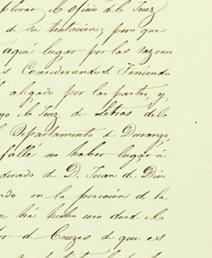 plorar el oficio del Juez
de su tentacion; pero que
aquí lugar por las razones
s Considerandos. Teniendo
alegado por las partes, y
yo el Juez de Letras de la
l Departamento de Durango,
falló no haber lugar á
derado de D. Juan de Dios
ndo en la porcion de la
n há hecho uno desde el
or de Cruzes de que es